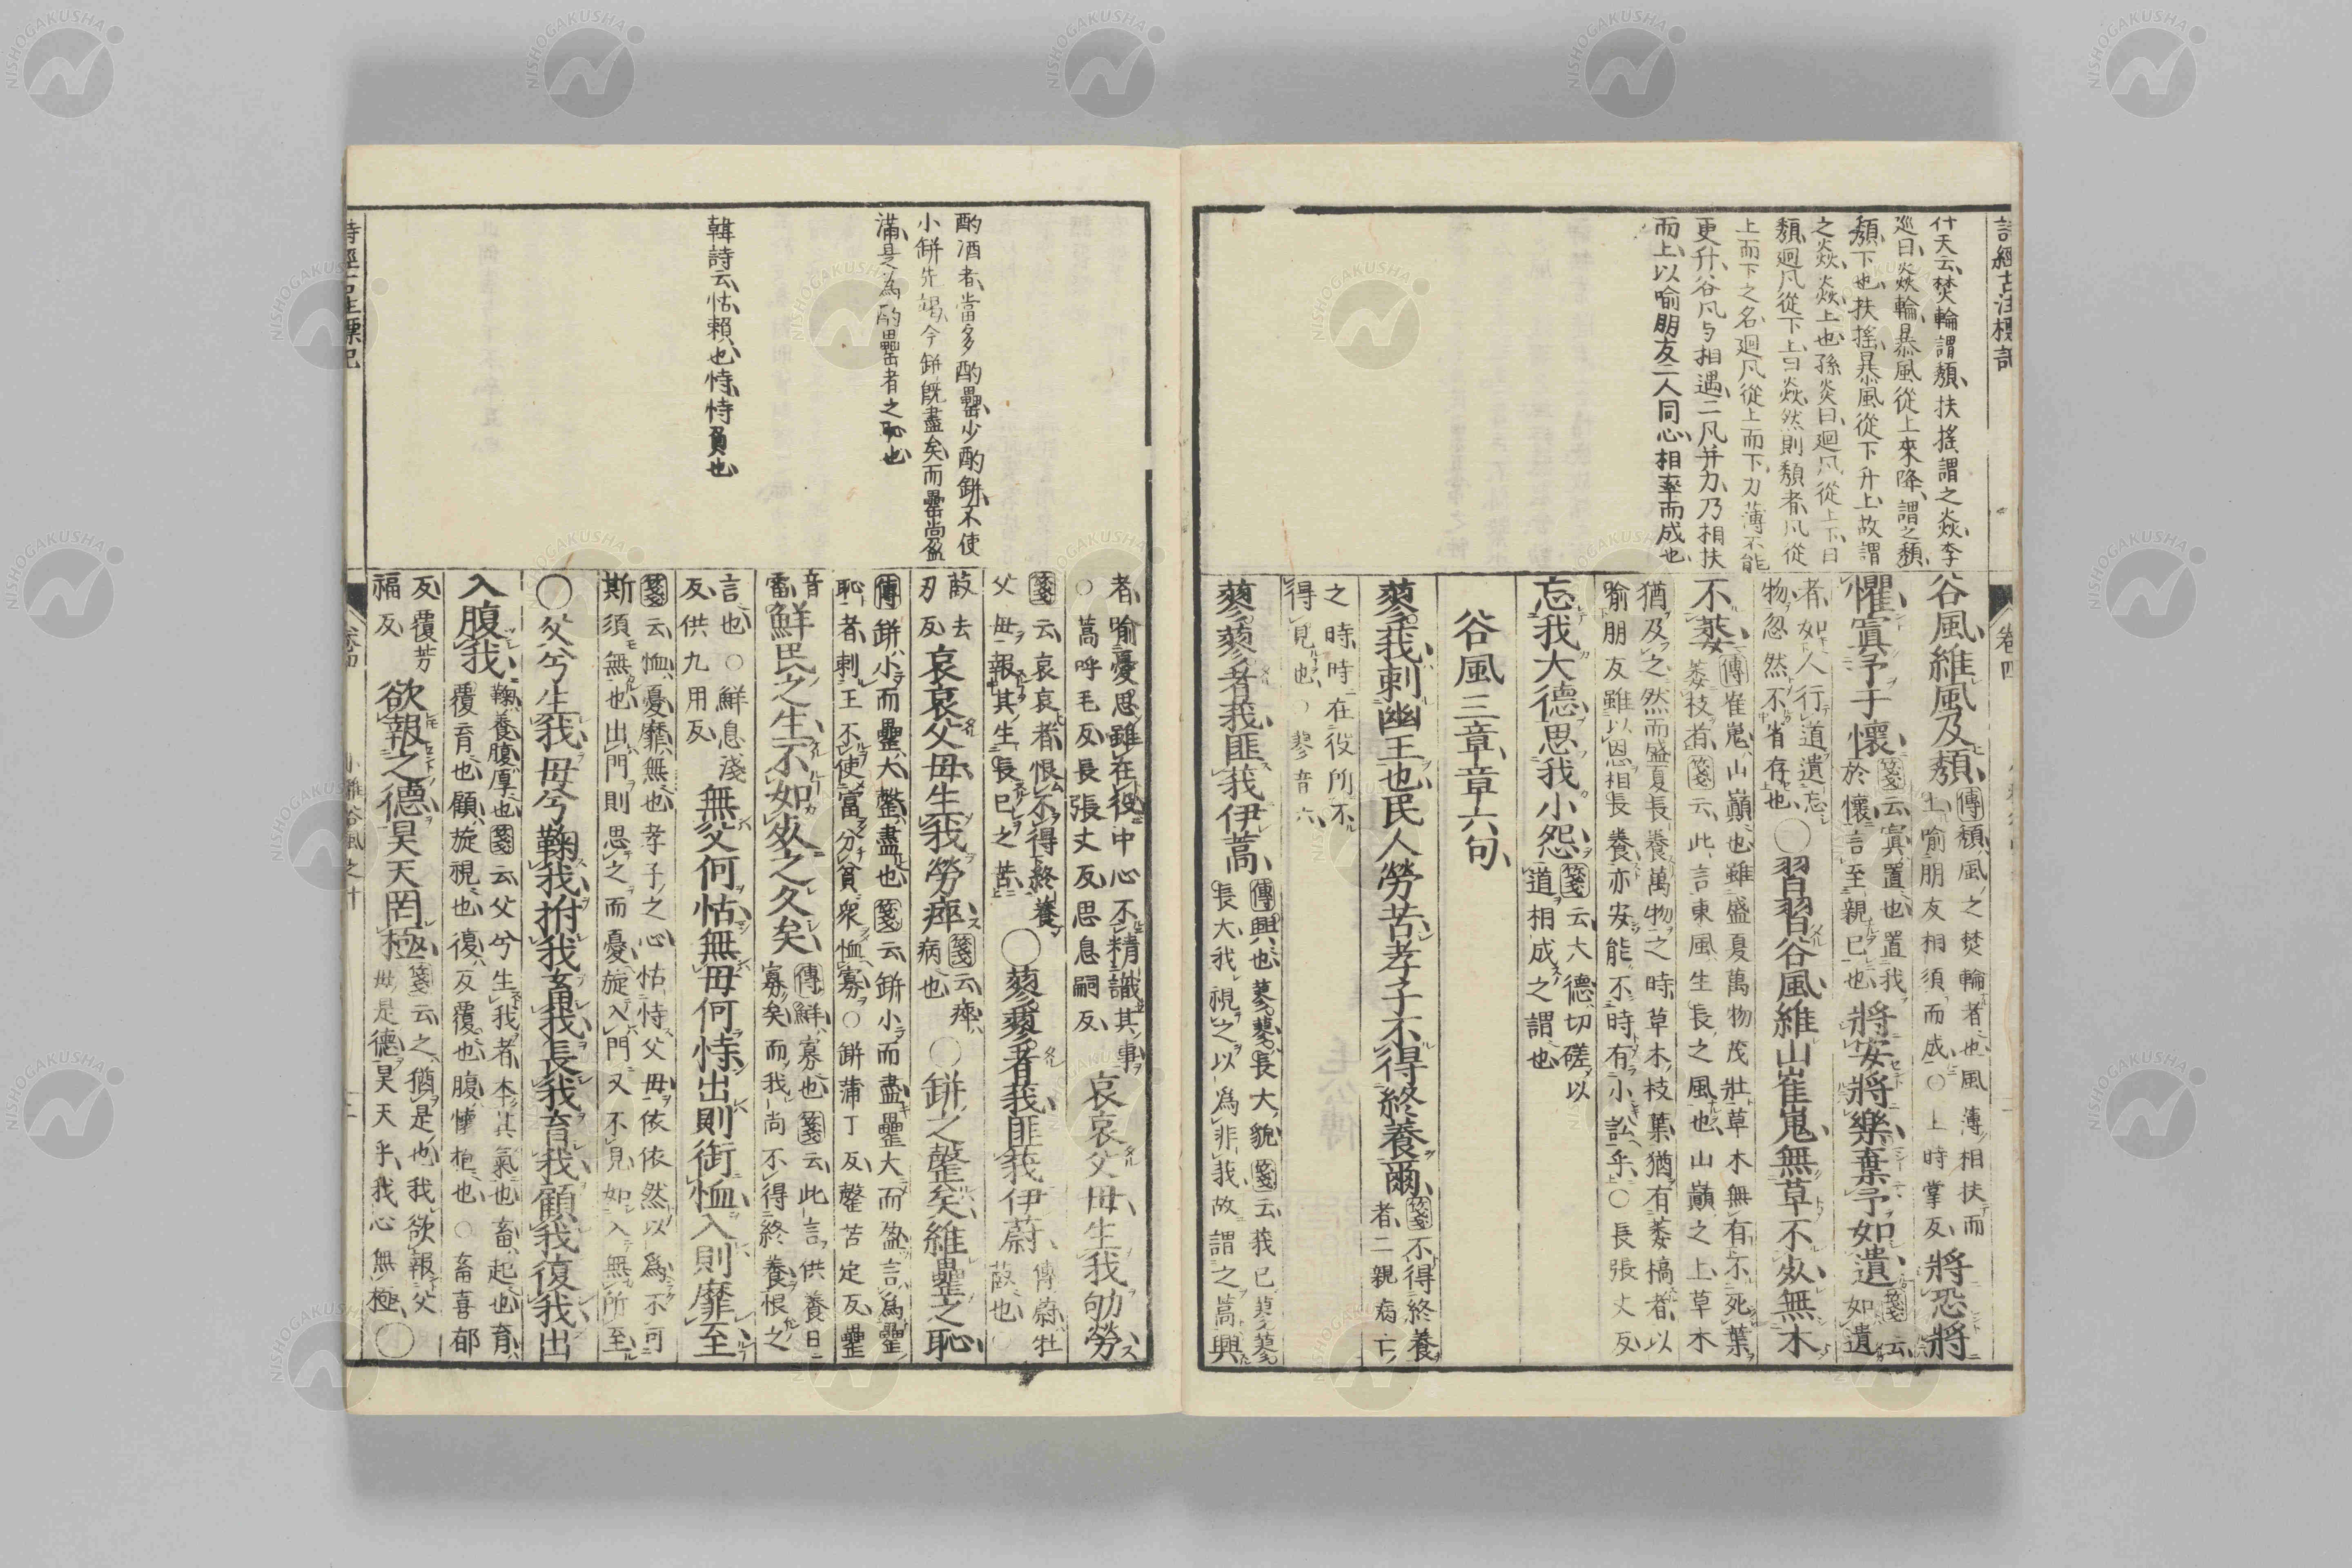 詩經古注標記
什天云焚輪謂頽、扶搖謂之焱、李
巡曰焱輪暴風從上來降、謂之頽、
頽下也、扶搖暴風從下升上、故謂
之焱、焱上也、孫炎曰、廻凮從上下曰
頽、廻凮從下上曰焱、然則頽者、凮從
上而下之名、廻凮從上而下、力薄不能
更升、谷凮与相遇、二凮并力、乃相扶
而上、以喻朋友二人同心、相率而成也、
卷四
谷風、維風及頽、
傳頽風之焚輪者也風薄相扶而
上喻朋友相須而成、○上時掌反、
將恐將
懼、寘予于懷、
箋云寘置也置我
於懷言至親已也
將安將樂、棄予如遺、
箋云
如遺
者、如人行道遺忘
物、忽然不省存也、
○習習谷風、維山崔嵬、無草不死、無木
不萎、
傳崔嵬、山巔也雖盛夏萬物茂壯草木無有不死葉
萎枝者、箋云、此言東風生長之風也山巔之上草木
猶及之、然而盛夏長養萬物之時、草木枝葉猶有萎槁者、以
喻朋友雖以恩相長養亦安能不時有小訟乎、○長張丈反、
忘我大德、思我小怨、
箋云大德切磋以
道相成之謂也
谷風三章、章六句、
蓼莪、刺幽王也、民人勞苦、孝子不得終養爾、
箋不得終養
者、二親病亡
之時、時在役所不
得見也、○蓼音六、
蓼蓼者莪、匪莪伊蒿、
傳興也、蓼蓼、長大貌、箋云莪已蓼蓼
長大、我視之以爲非莪、故謂之蒿、興
酌酒者、當多酌罍、少酌缾、不使
小缾先竭、今缾旣盡矣、而罍尚盈
滿、是爲酌罍者之恥也、
韓詩云、怙賴也、恃、恃負也、
者、喻憂思雖在役中心不精識其事、
○蒿呼毛反、長張丈反、思息嗣反、
哀哀父母、生我劬勞、
箋云、哀哀者、恨不得終養
父母、報其生長己之苦、
○蓼蓼者莪、匪莪伊蔚、
傳蔚牡
菣也○
菣去
刃反、
哀哀父母、生我勞瘁、
箋云瘁
病也
○缾之罄矣、維罍之恥、
傳缾小而罍大罄盡也、箋云缾小而盡罍大而盈言爲罍
恥者、刺王不使富分貧衆恤寡○缾蒲丁反、罄苦定反、罍
音
雷、
鮮民之生、不如死之久矣、
傳鮮寡也箋云、此言供養日
寡矣、而我尚不得終養恨之
言也、○鮮息淺
反、供九用反、
無父何怙、無母何恃、出則銜恤、入則靡至、
箋云、恤憂、靡無也孝子之心怙恃父母、依依然以爲不可
斯須無也出門則思之而憂、旋入門又不見如入無所至、
○父兮生我、母兮鞠我、拊我畜我、長我育我、顧我復我、出
入腹我、
鞠養腹厚也箋云父兮生我者、本其氣也畜、起也育、
覆育也顧旋視也、復反覆也腹懷抱也、○畜喜郁
反、覆芳
福反、
欲報之德、昊天罔極、
箋云之猶是也我欲報父
母是德昊天乎、我心無極、
○
詩經古注標記
卷四
小雅谷風之什